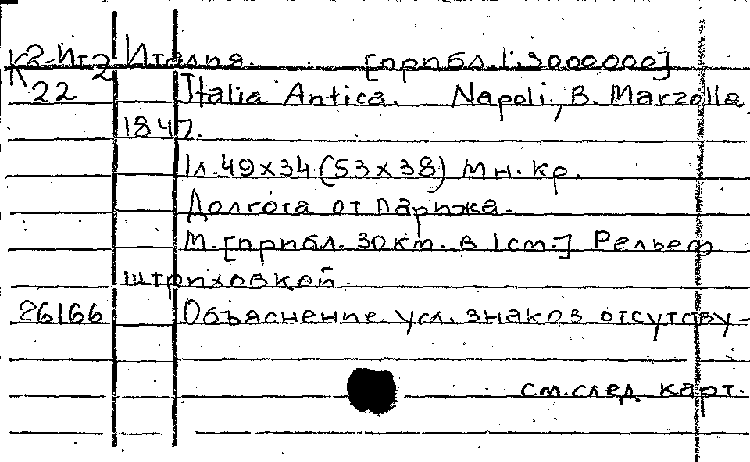 К2-Ит2 Италия. [прибл. 1:3000000]
К 22 Italia Antica. Napoli, B. Marzolla
1847.
1л. 49х34 (53х38) Мн. кр.
Долгота от Парижа.
М. [прибл. 30 км. в 1 см.] Рельеф
штриховкой
26166 Объяснение усл. знаков отсутству-
см. след. карт.